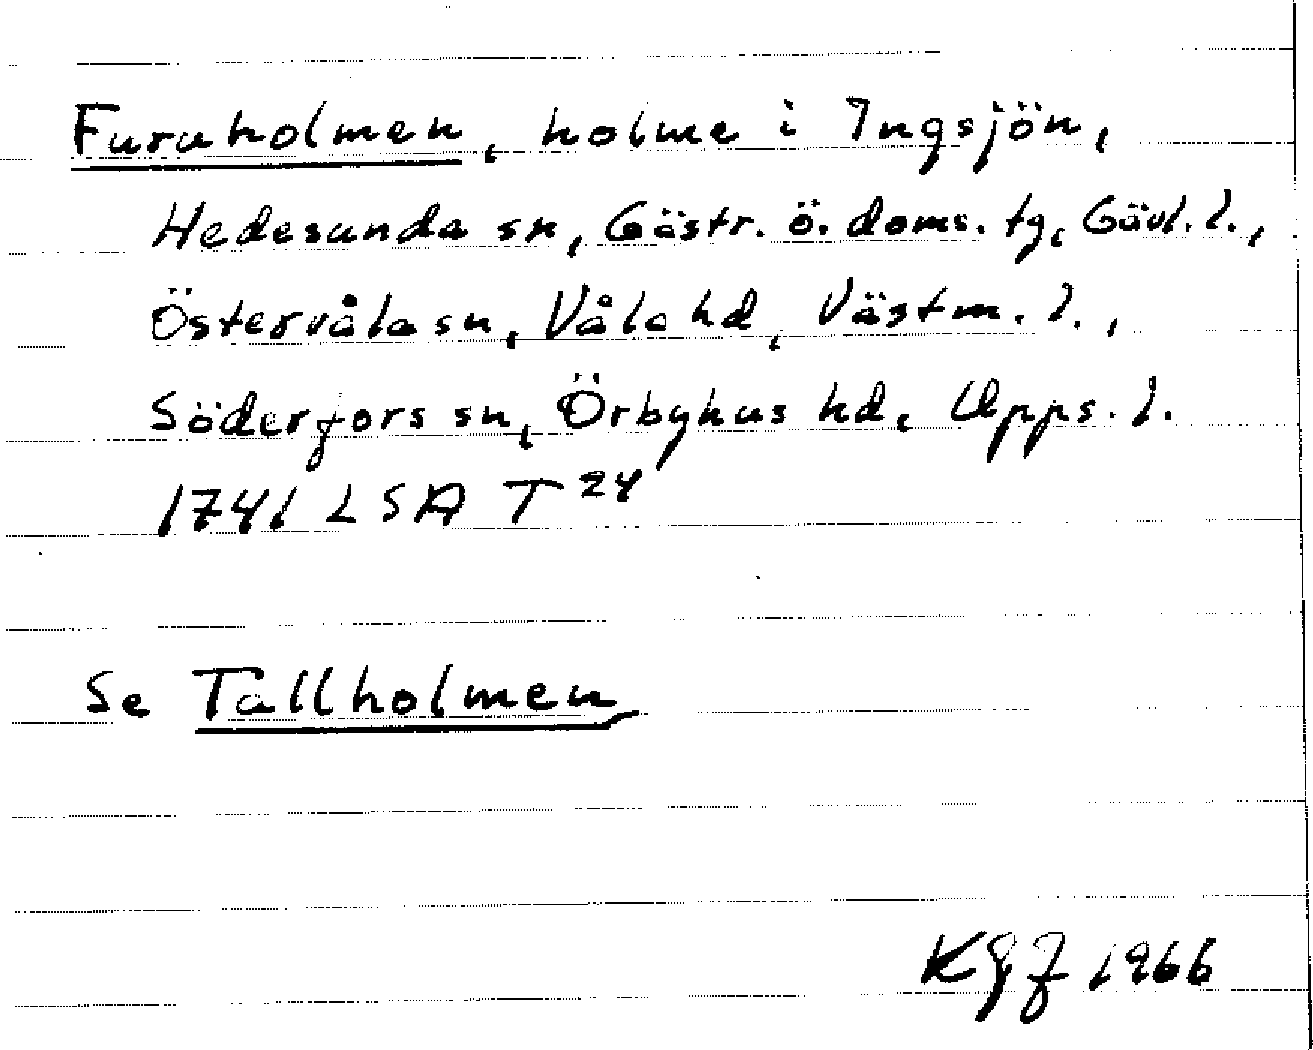 Furuholmen, holme i Ingsjön,
Hedesunda sn, Gästr. ö. doms. tg, Gävl. l.,
Östervåla sn, Våla hd, Västm. l.,
Söderfors sn, Örbyhus hd, Upps. l.
1741 LSA T 24
Se Tallholmen
1966